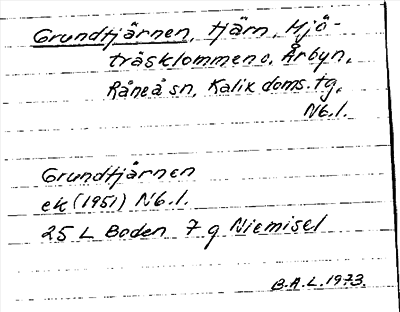 Grundtjärnen, tjärn, Mjö-
träsklommen o. Årbyn,
Råneå sn, Kalix doms. tg,
Nb. l.
Grundtjärnen
ek (1951) Nb. l.
25 L Boden 7 g Niemisel
B.A.L. 1973.